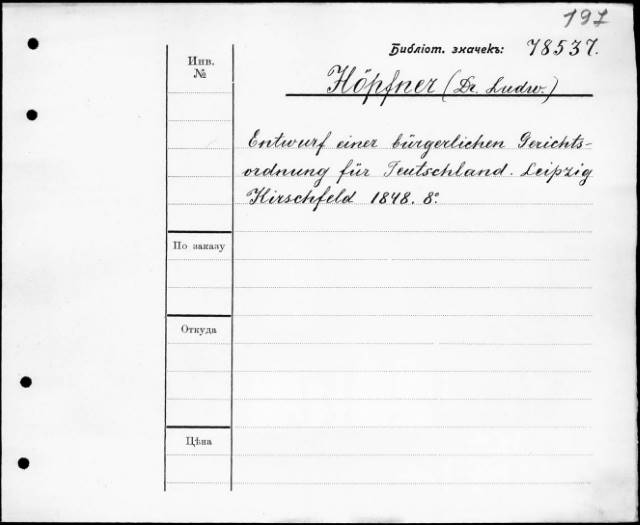 197
Библіот. значекъ: 78537.
Инв.
№
Höpfner (Dr. Ludw.)
Entwurf einer bürgerlichen Gerichts-
ordnung für Teutschland. Leipzig
Hirschfeld 1848. 8°.
По заказу
Откуда
Цѣна